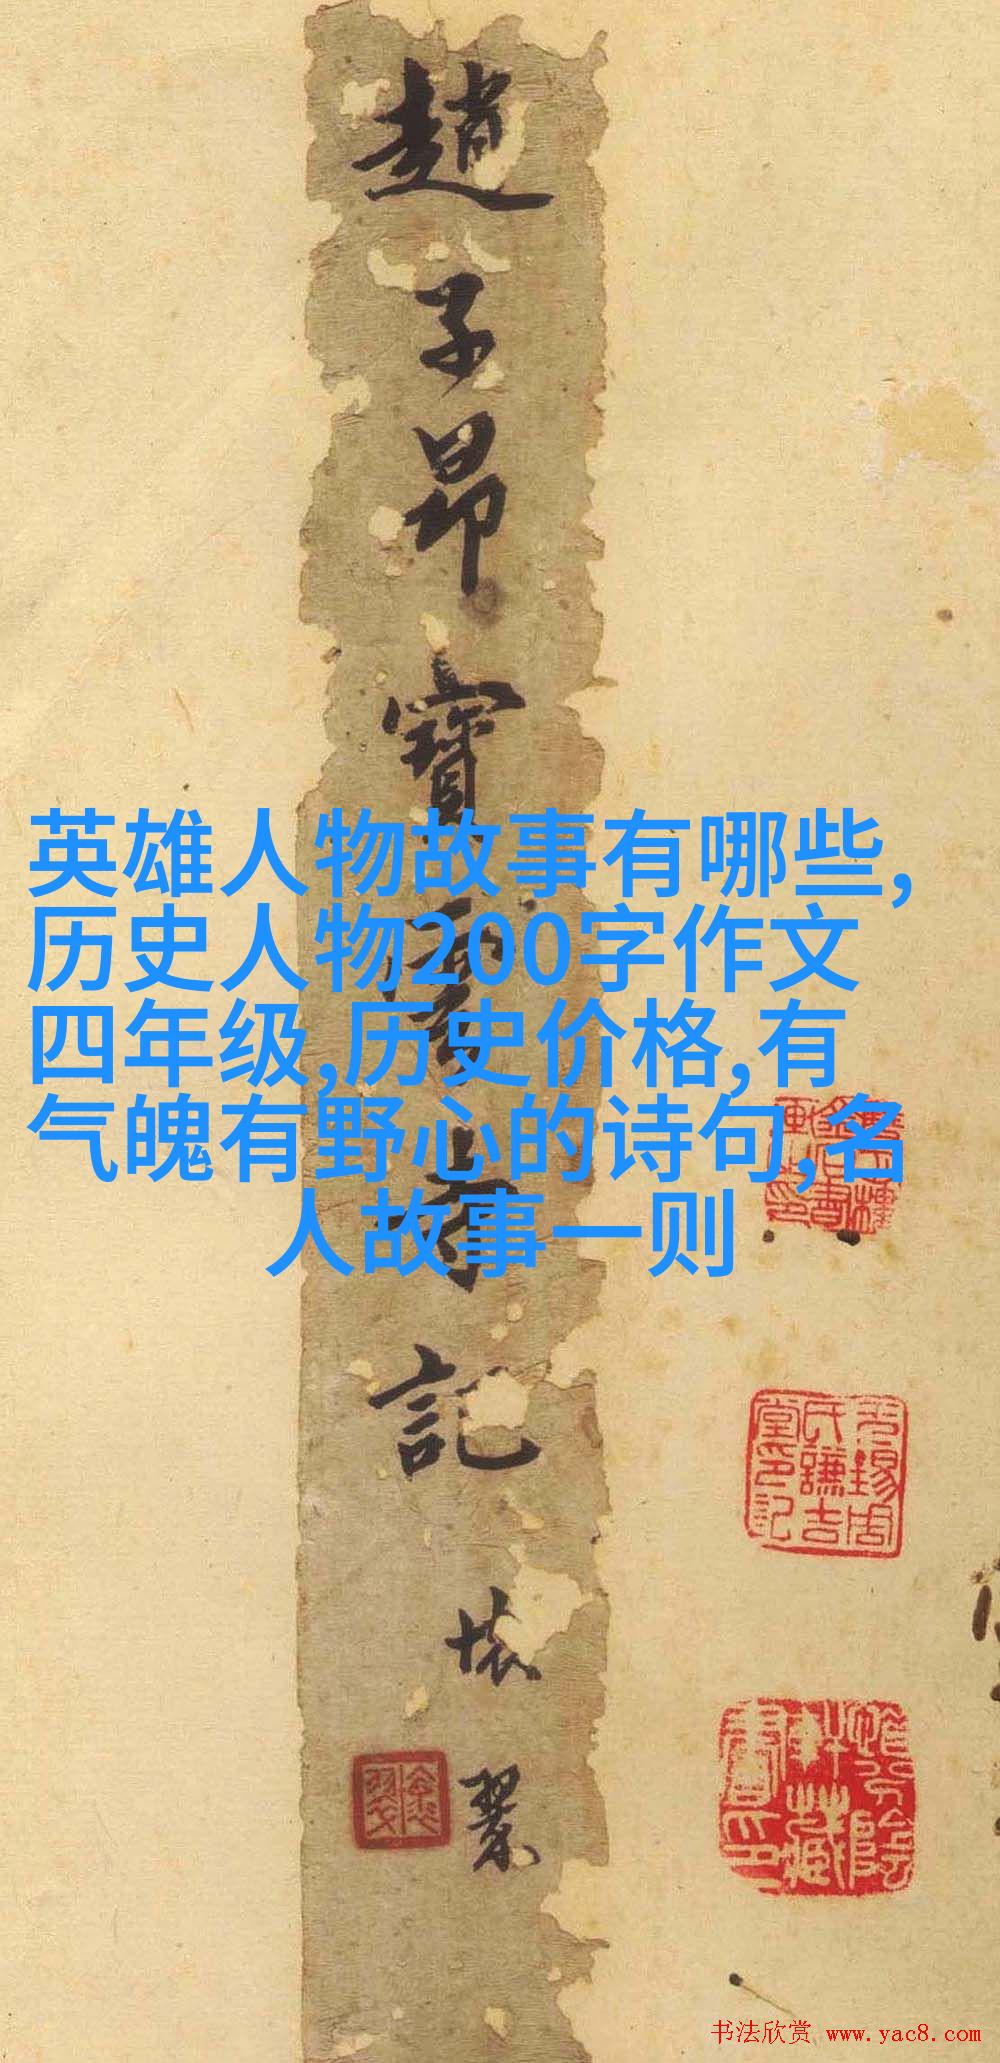 趙子昂寶雲寺記
英雄人物故事有哪些,
历史人物200字作文
四年级,历史价格,有
气魄有野心的诗句,名
人故事一则
无锡周
氏謙吉
堂印記
书法欣赏 www.yac8.com